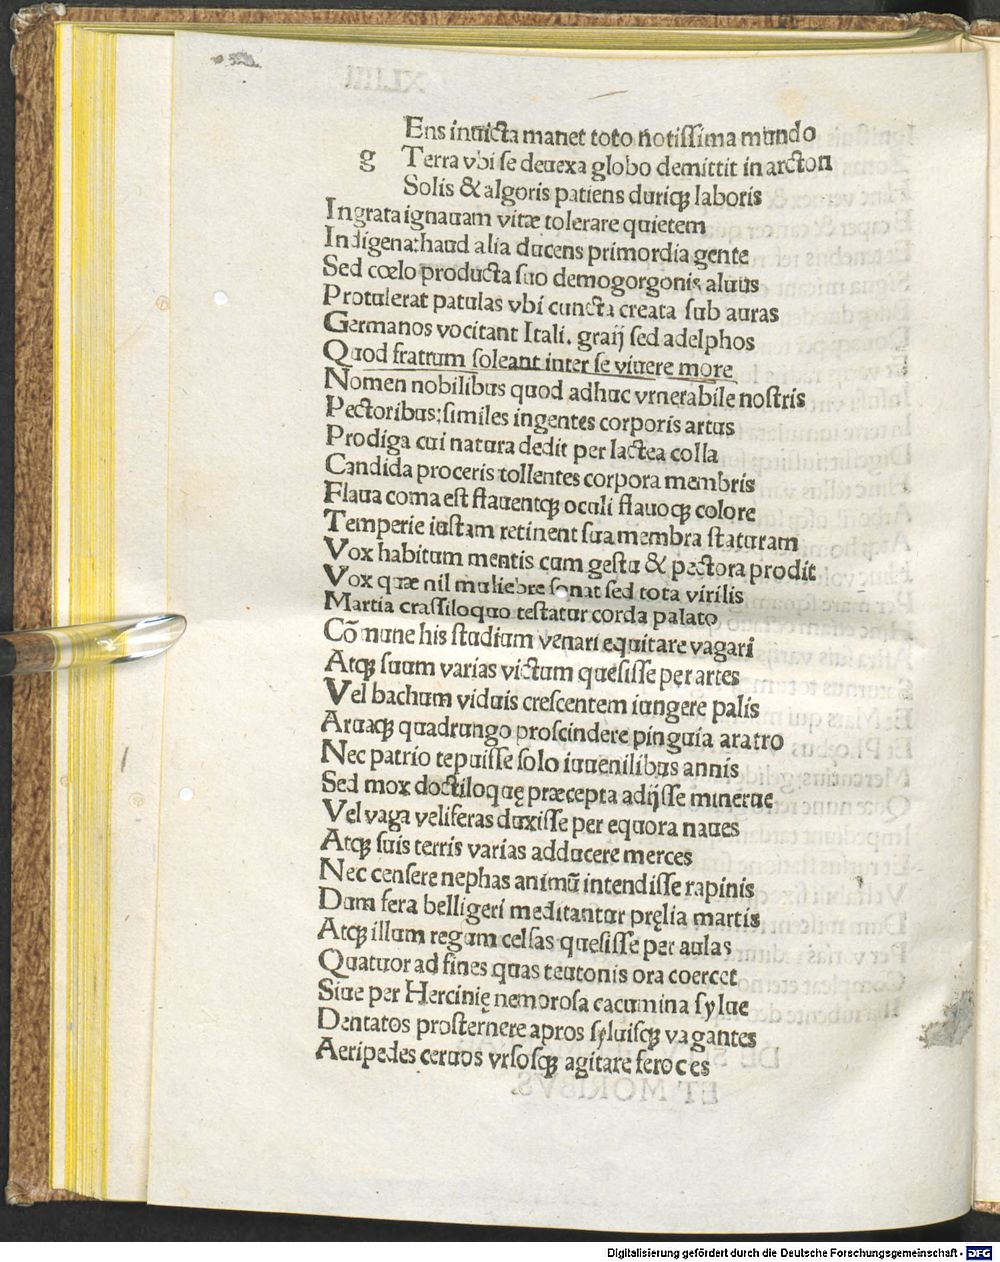 Ens inuicta manet toto notissima mundo
g Terra vbi se deuexa globo demittit in arcton
Solis & algoris patiens duriqꝫ laboris
Ingrata ignauam vitæ tolerare quietem
Indigena: haud alia ducens primordia gente
Sed cœlo producta suo demogorgonis aluus
Protulerat patulas vbi cuncta creata sub auras
Germanos vocitant Itali. graij sed adelphos
Quod fratrum soleant inter se viuere more
Nomen nobilibus quod adhuc vrnerabile nostris
Pectoribus: similes ingentes corporis artus
Prodiga cui natura dedit per lactea colla
Candida proceris tollentes corpora membris
Flaua coma est flauentqꝫ oculi flauoqꝫ colore
Temperie iustam retinent sua membra staturam
Vox habitum mentis cum gestu & pectora prodit
Vox quæ nil muliebre sonat sed tota virilis
Martia crassiloquo testatur corda palato
Cōmune his studium venari equitare vagari
Atqꝫ suum varias victum quesisse per artes
Vel bachum viduis crescentem iungere palis
Aruaqꝫ quadrungo proscindere pinguia aratro
Nec patrio tepuisse solo iuuenilibus annis
Sed mox doctiloquę præcepta adijsse minerue
Vel vaga veliferas duxisse per equora naues
Atqꝫ suis terris varias adducere merces
Nec censere nephas animū intendisse rapinis
Dum fera belligeri meditantur pręlia martis
Atqꝫ illum regum celsas quesisse per aulas
Quatuor ad fines quas teutonis ora coercet
Siue per Hercinię nemorosa cacumina sylue
Dentatos prosternere apros syluisqꝫ vagantes
Aeripedes ceruos vrsosqꝫ agitare feroces
Digitalisierung gefördert durch die Deutsche Forschungsgemeinschaft - DFG